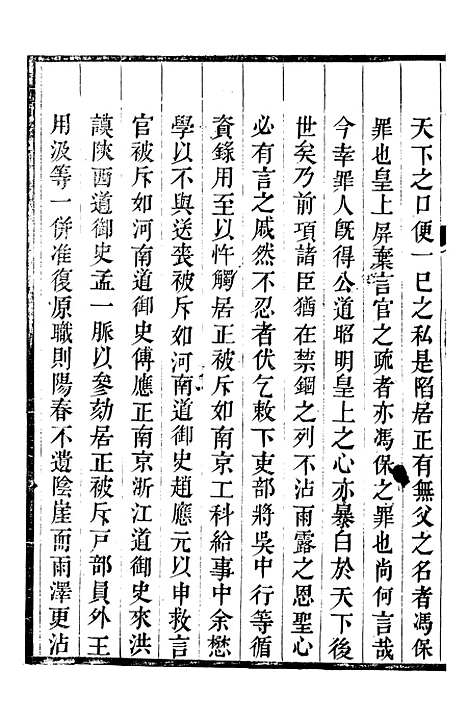 天下之口便一已之私是陷居正有無父之名者馮保
罪也皇上屏棄言官之疏者亦馮保之罪也尚何言哉
今幸罪人旣得公道昭明皇上之心亦暴白於天下後
世矣乃前項諸臣猶在禁錮之列不沾雨露之恩聖心
必有言之戚然不忍者伏乞敕下吏部將吳中行等循
資錄用至以忤觸居正被斥如南京工科給事中余懋
學以不與送喪被斥如河南道御史趙應元以申救言
官被斥如河南道御史傅應正南京浙江道御史來洪
謨陝西道御史孟一脈以參劾居正被斥戸部員外王
用汲等一併准復原職則陽春不遺陰崖而雨澤更沾